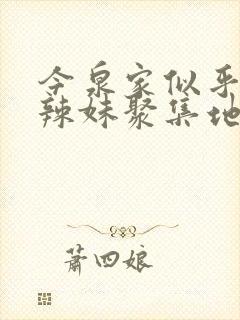 今泉家似乎
辣妹聚集地
萧四娘